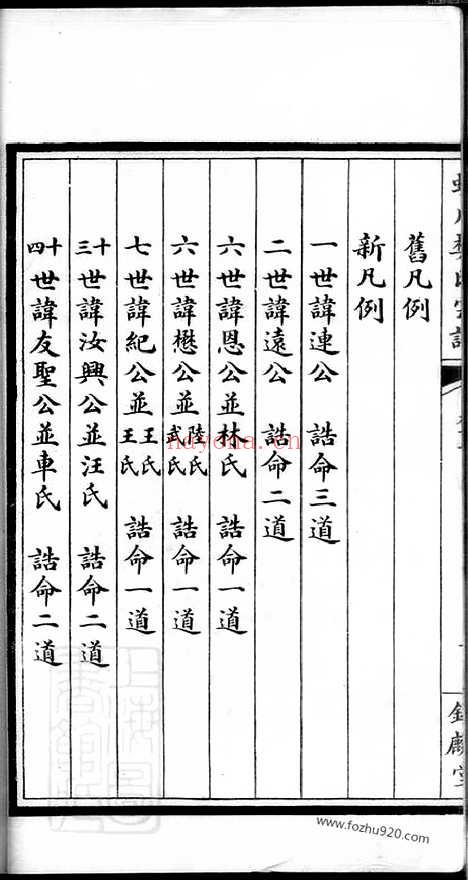 舊凡例
新凡例
一世諱連公　誥命三道
二世諱遠公　誥命二道
六世諱恩公並林氏　誥命一道
六世諱懋公並陸氏武氏　誥命一道
七世諱紀公並王氏王氏　誥命一道
十三世諱汝興公並汪氏　誥命二道
十四世諱友聖公並車氏　誥命二道
nayona.cn
www.fozhu920.com